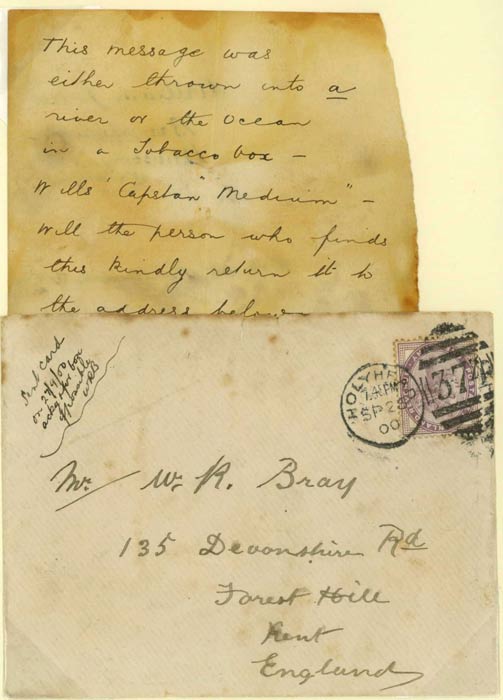 This message was
either thrown into a
river or the Ocean
in a Tobacco box -
Wills "Capstan" Medium" -
Will the person who finds
this kindly return it to
the address below
Post Card
on 29/9/00
ackg for box
WRB
HOLYHEAD
7.45 PM
SP 28
00
137
Mr W. R. Bray
135 Devonshire Rd
Forest Hill
Kent
England